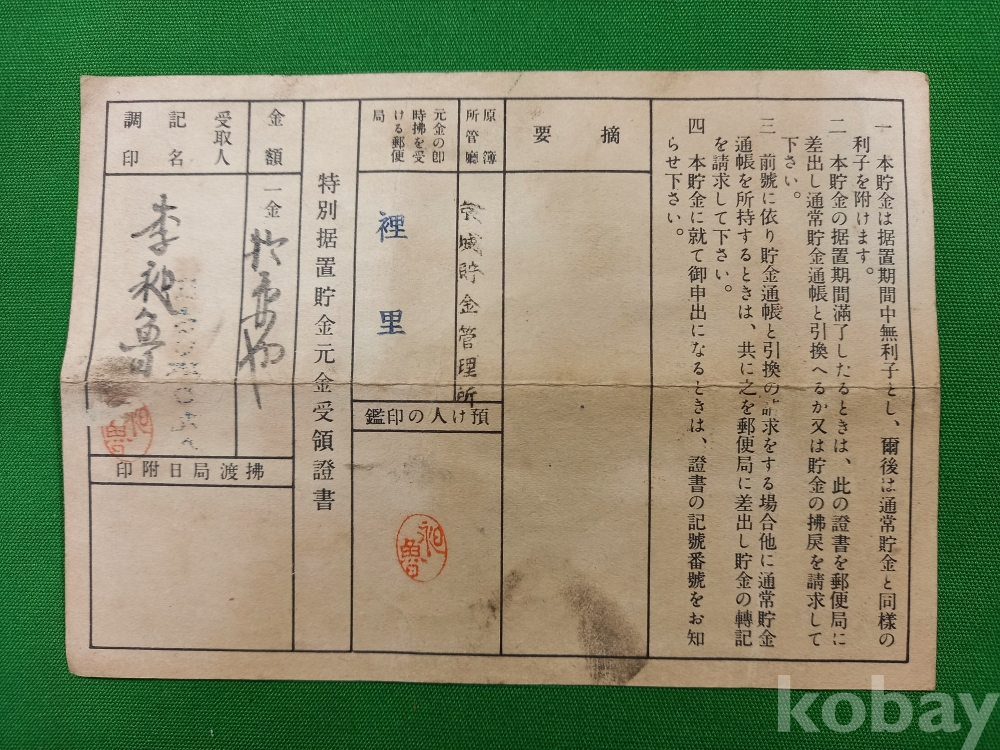 一　本貯金は据置期間中無利子とし、爾後は通常貯金と同様の
利子を附けます。
二　本貯金の据置期間滿了したるときは、此の證書を郵便局に
差出し通常貯金通帳と引換へるか又は貯金の拂戻を請求して
下さい。
三　前號に依り貯金通帳と引換の請求をする場合他に通常貯金
通帳を所持するときは、共に之を郵便局に差出し貯金の轉記
を請求して下さい。
四　本貯金に就て御申出になるときは、證書の記號番號をお知
らせ下さい。
摘要
原簿
所管廳
京城貯金管理所
元金の卽
時拂を受
ける郵便
局
裡里
預け人の印鑑
昶魯
特別据置貯金元金受領證書
金額
一金
受取人
記名
調印
李昶魯
昶魯
拂渡局日附印
kobay